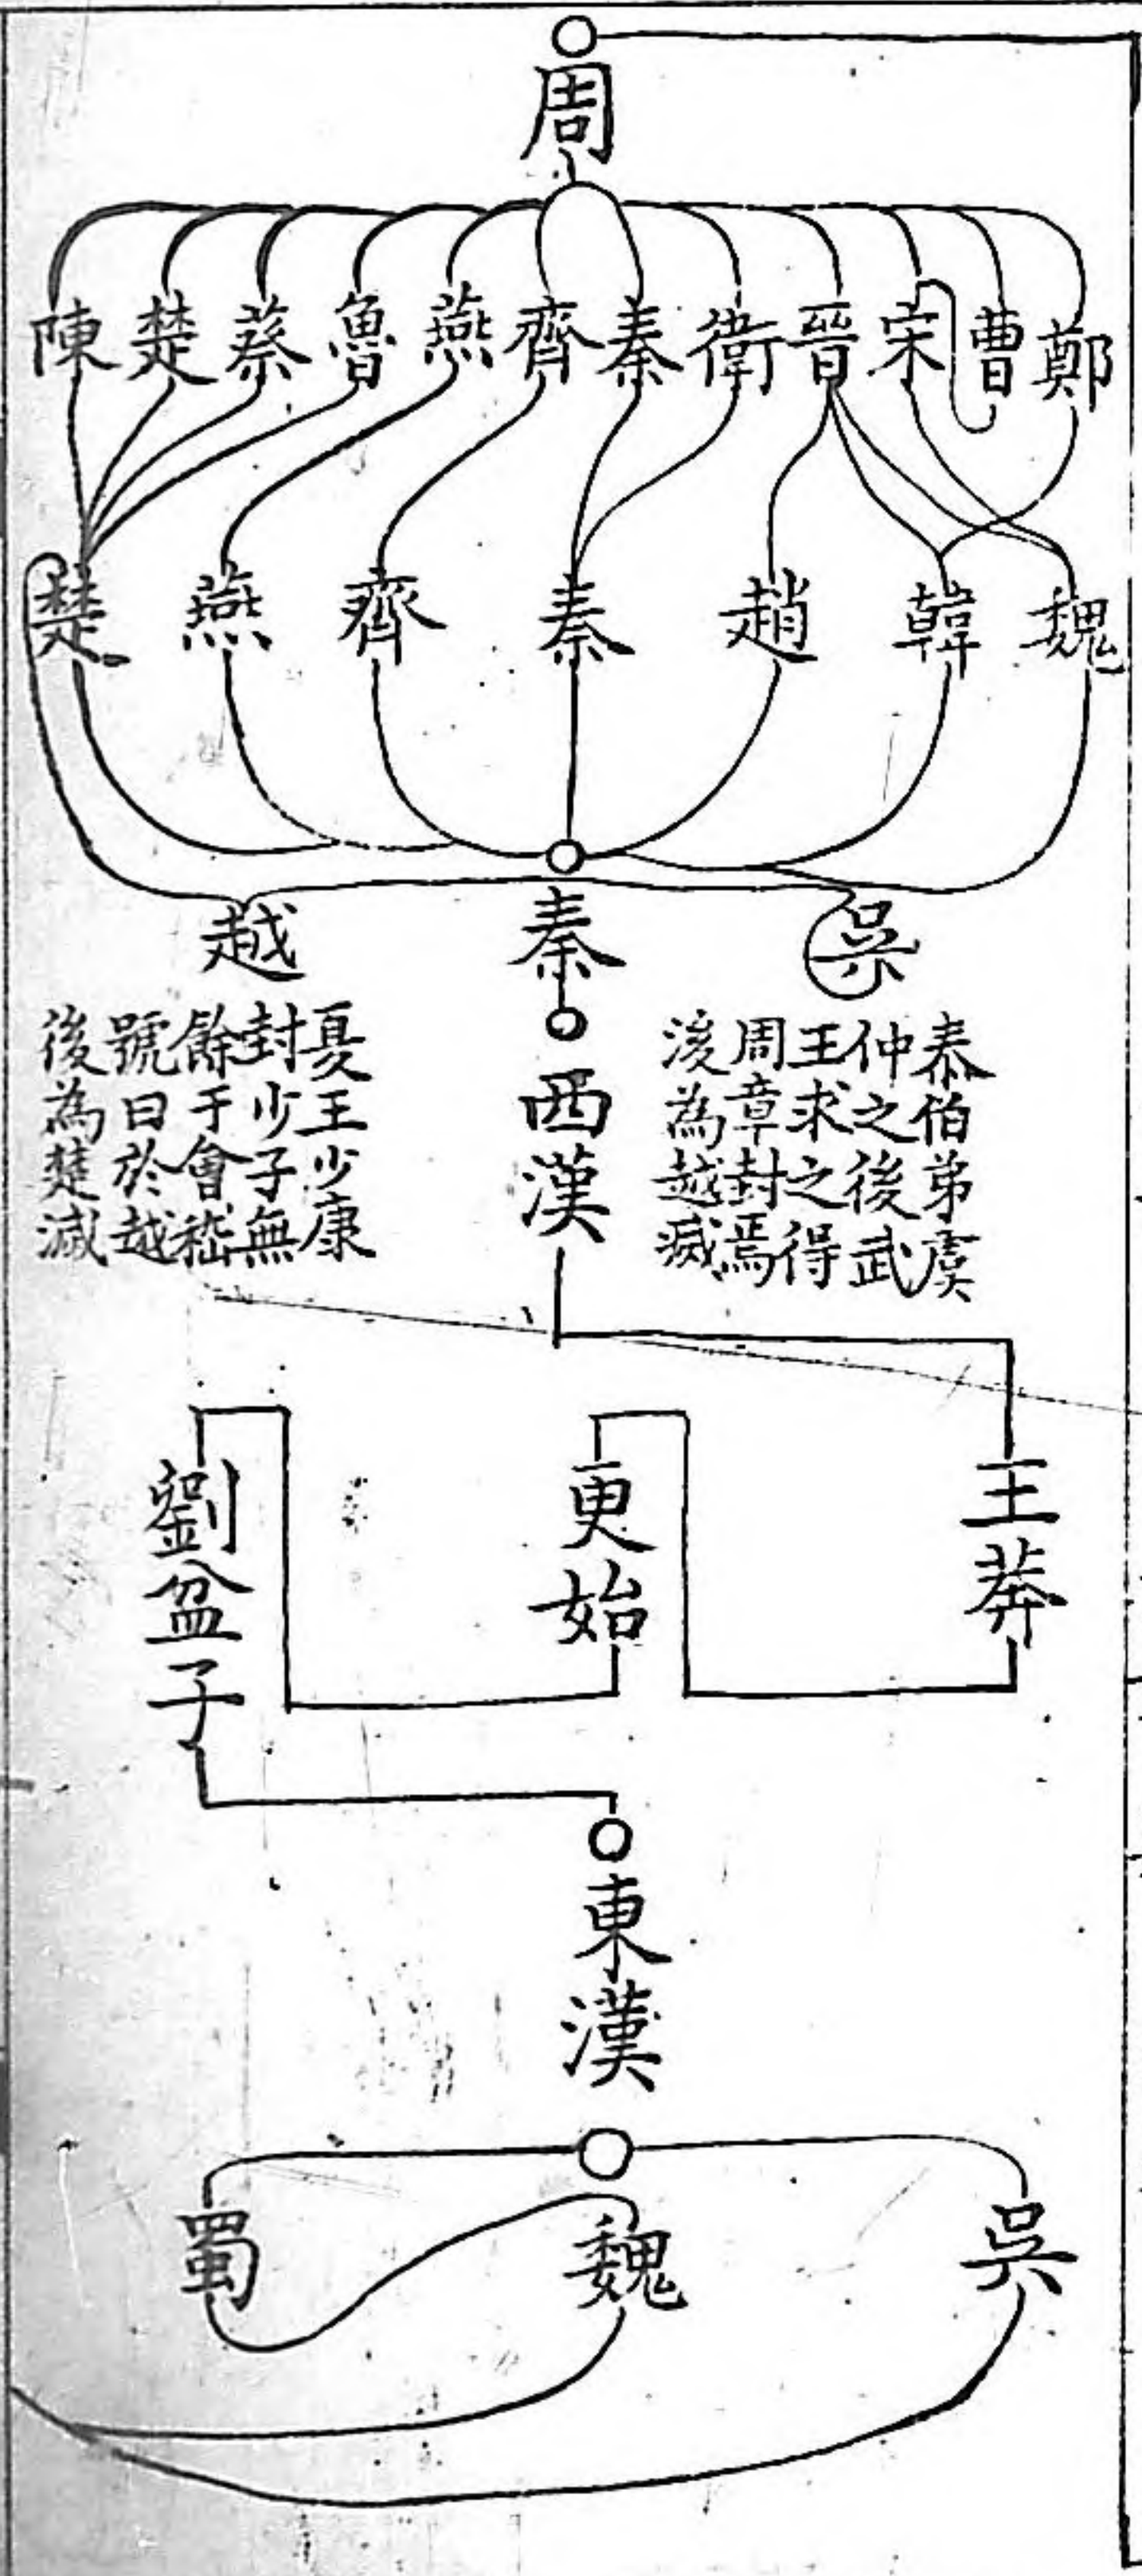 周
鄭曹宋晉衛秦齊燕魯蔡楚陳
魏韓趙秦齊燕楚
吳
泰伯弟虞
仲之後武
王求之得
周章封焉
後為越滅
秦
越
夏王少康
封少子無
餘于會嵇
號曰於越
後為楚滅
西漢
王莽
更始
劉盆子
東漢
吳
魏
蜀